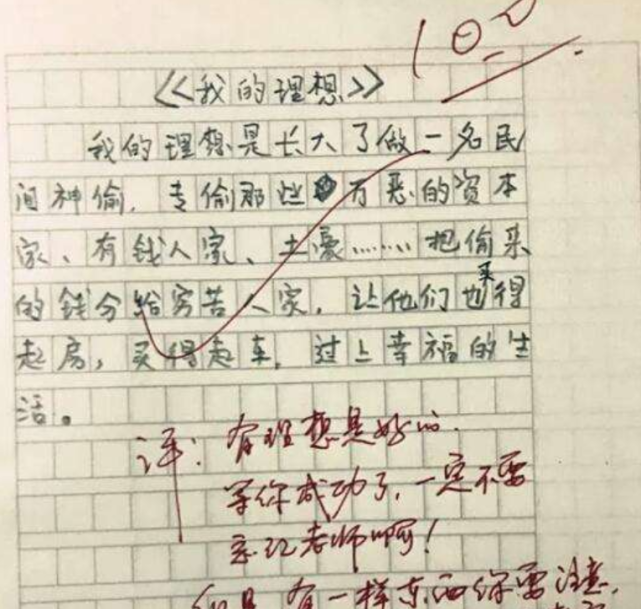 100
《我的理想》
我的理想是长大了做一名民
间神偷，专偷那些万恶的资本
家、有钱人家、土豪……把偷来
的钱分给穷苦人家，让他们也买得
起房，买得起车，过上幸福的生
活。
评：有理想是好的.
等你成功了，一定不要
忘记老师啊！
但是有一样东西你要注意.